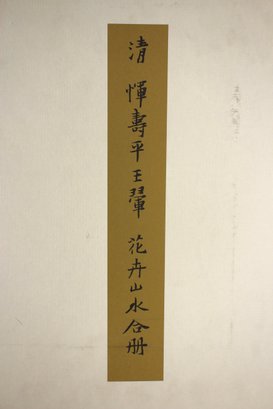 清 惲壽平王翬 花卉山水合册